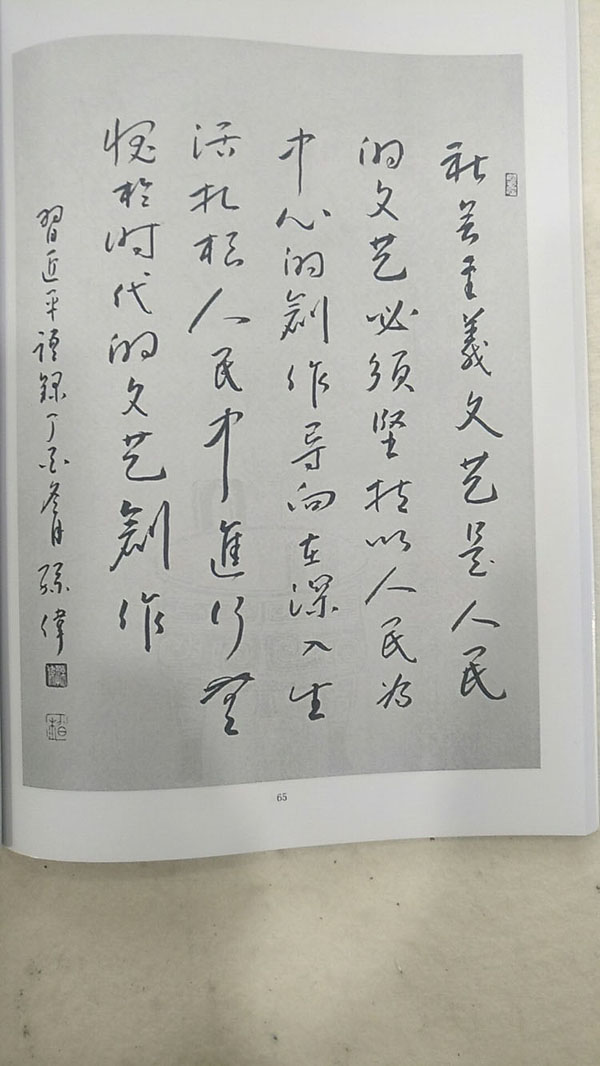 社会主義文艺是人民
的文艺必须坚持以人民为
中心的創作导向在深入生
活扎根人民中進行無
愧於时代的文艺創作
習近平語録丁酉月孫偉
65